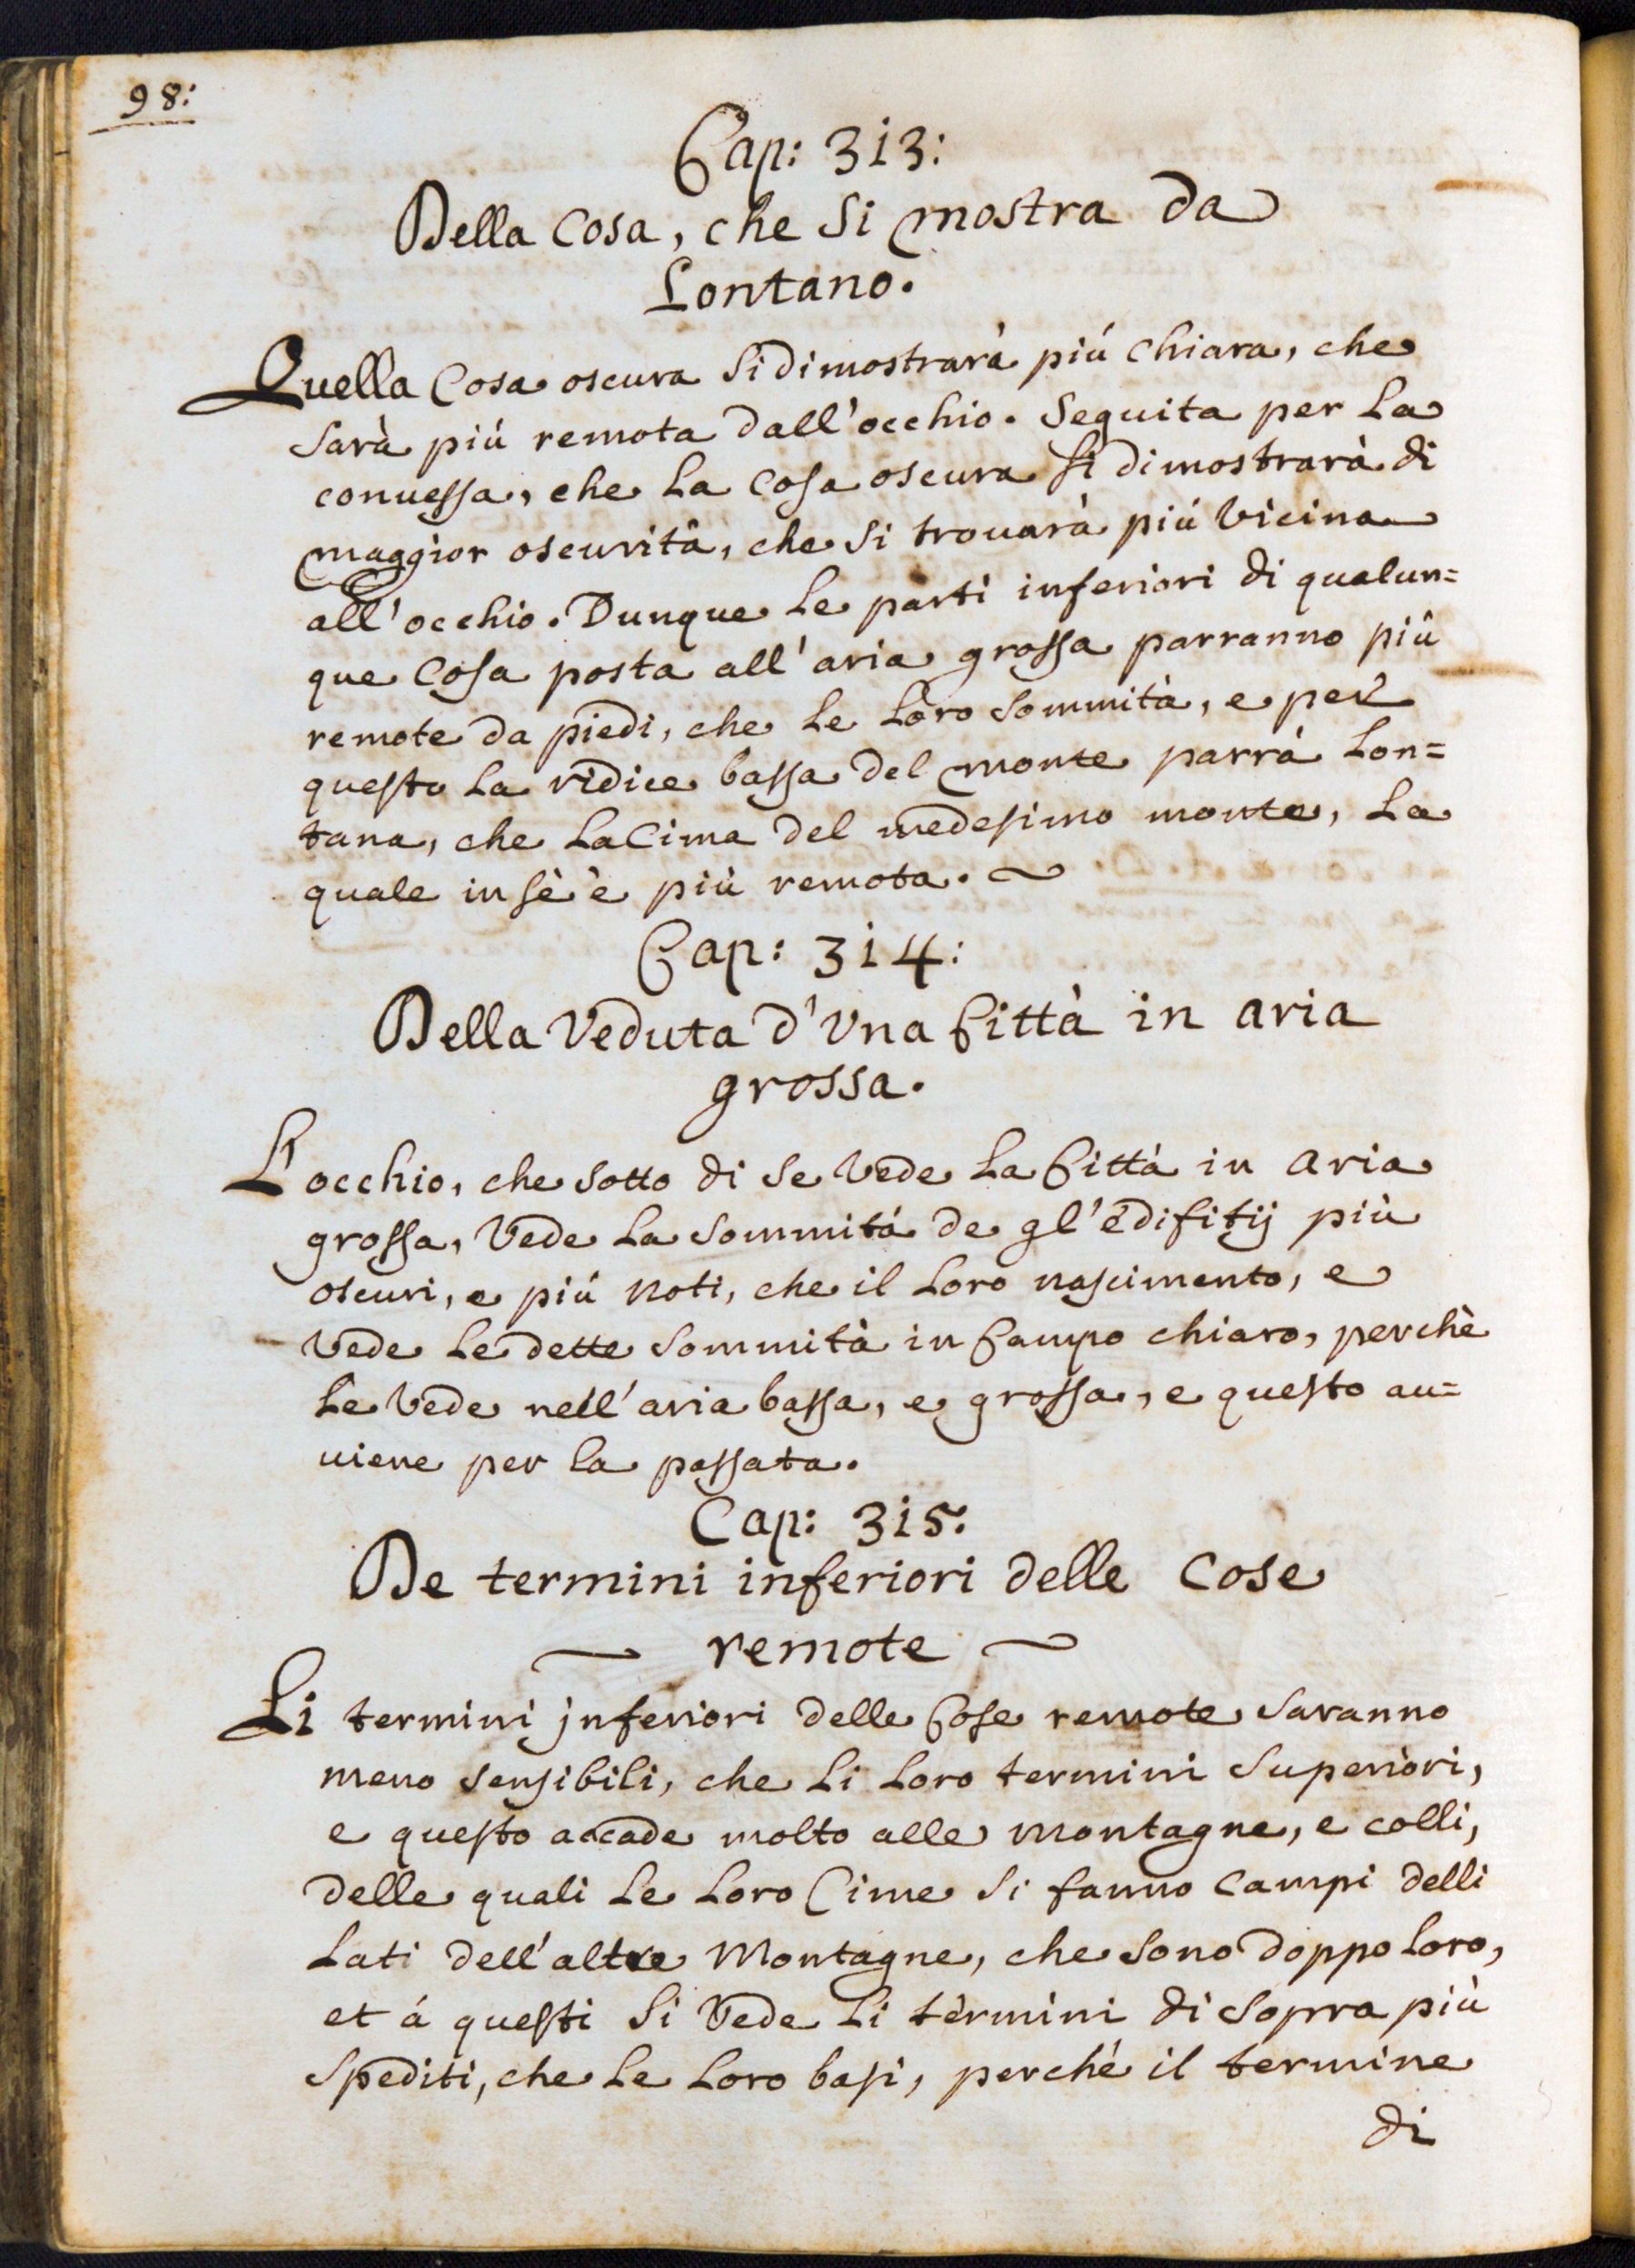 98:
Cap: 313:
Della Cosa, che si mostra da
Lontano.
Quella Cosa oscura si dimostrarà più chiara, che
sarà più remota dall'occhio. Seguita per la
conuessa, che la cosa oscura si dimostrarà di
maggior oscurità, che si trouarà più vicina
all'occhio. Dunque le parti inferiori di qualun=
que cosa posta all'aria grossa parranno più
remote da piedi, che le loro sommità, e per
questo la ridice bassa del monte parrà lon=
tana, che la Cima del medesimo monte, la
quale in sè è più remota.
Cap: 314:
Della Veduta d'Vna Città in aria
grossa.
L'occhio, che sotto di se vede la Città in aria
grossa, vede la sommità de gl'edifitij più
oscuri, e più noti, che il loro nascimento, e
vede le dette sommità in Campo chiaro, perchè
le vede nell'aria bassa, e grossa, e questo au=
uiene per la passata.
Cap: 315:
De termini inferiori delle cose
remote
Li termini jnferiori delle Cose remote saranno
meno sensibili, che li loro termini superiori,
e questo accade molto alle montagne, e colli,
delle quali le loro Cime si fanno campi delli
lati dell'altre Montagne, che sono doppo loro,
et á questi si vede li tèrmini di sopra più
spediti, che le loro basi, perché il termine
di